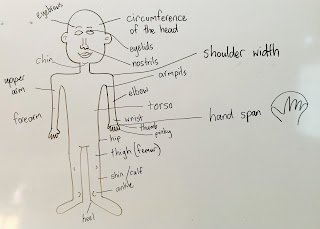 eyebrows
circumference
of the head
eyelids
nostrils
chin
shoulder width
armpits
upper
arm
elbow
forearm
torso
wrist
hand span
thumb
pinky
hip
thigh (femur)
shin / calf
ankle
heel